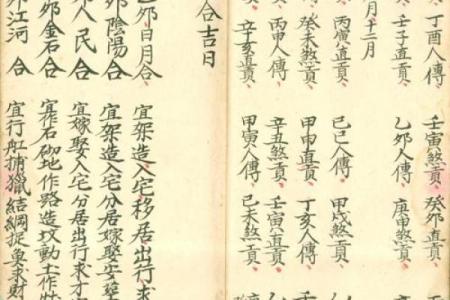 丁酉人傳、壬寅煞貢、癸卯直貢、
壬子直貢、乙卯人傳、庚申煞貢、
月十二月
丙寅直貢、己巳人傳、甲戌煞貢、
癸未煞貢、甲申直貢、丁亥人傳、
丙申人傳、辛丑煞貢、壬寅直貢、
辛亥直貢、甲寅人傳、己未煞貢、
合吉日
卯日月合、宜架造入宅移居出行求
卯陰陽合 宜架造入宅分居嫁娶安葬
卯人民合 宜嫁娶入宅分居出行求才
卯金石合 宜作石砌地作路造坟動工作
卯江河合 宜行舡捕獵結網捉求財